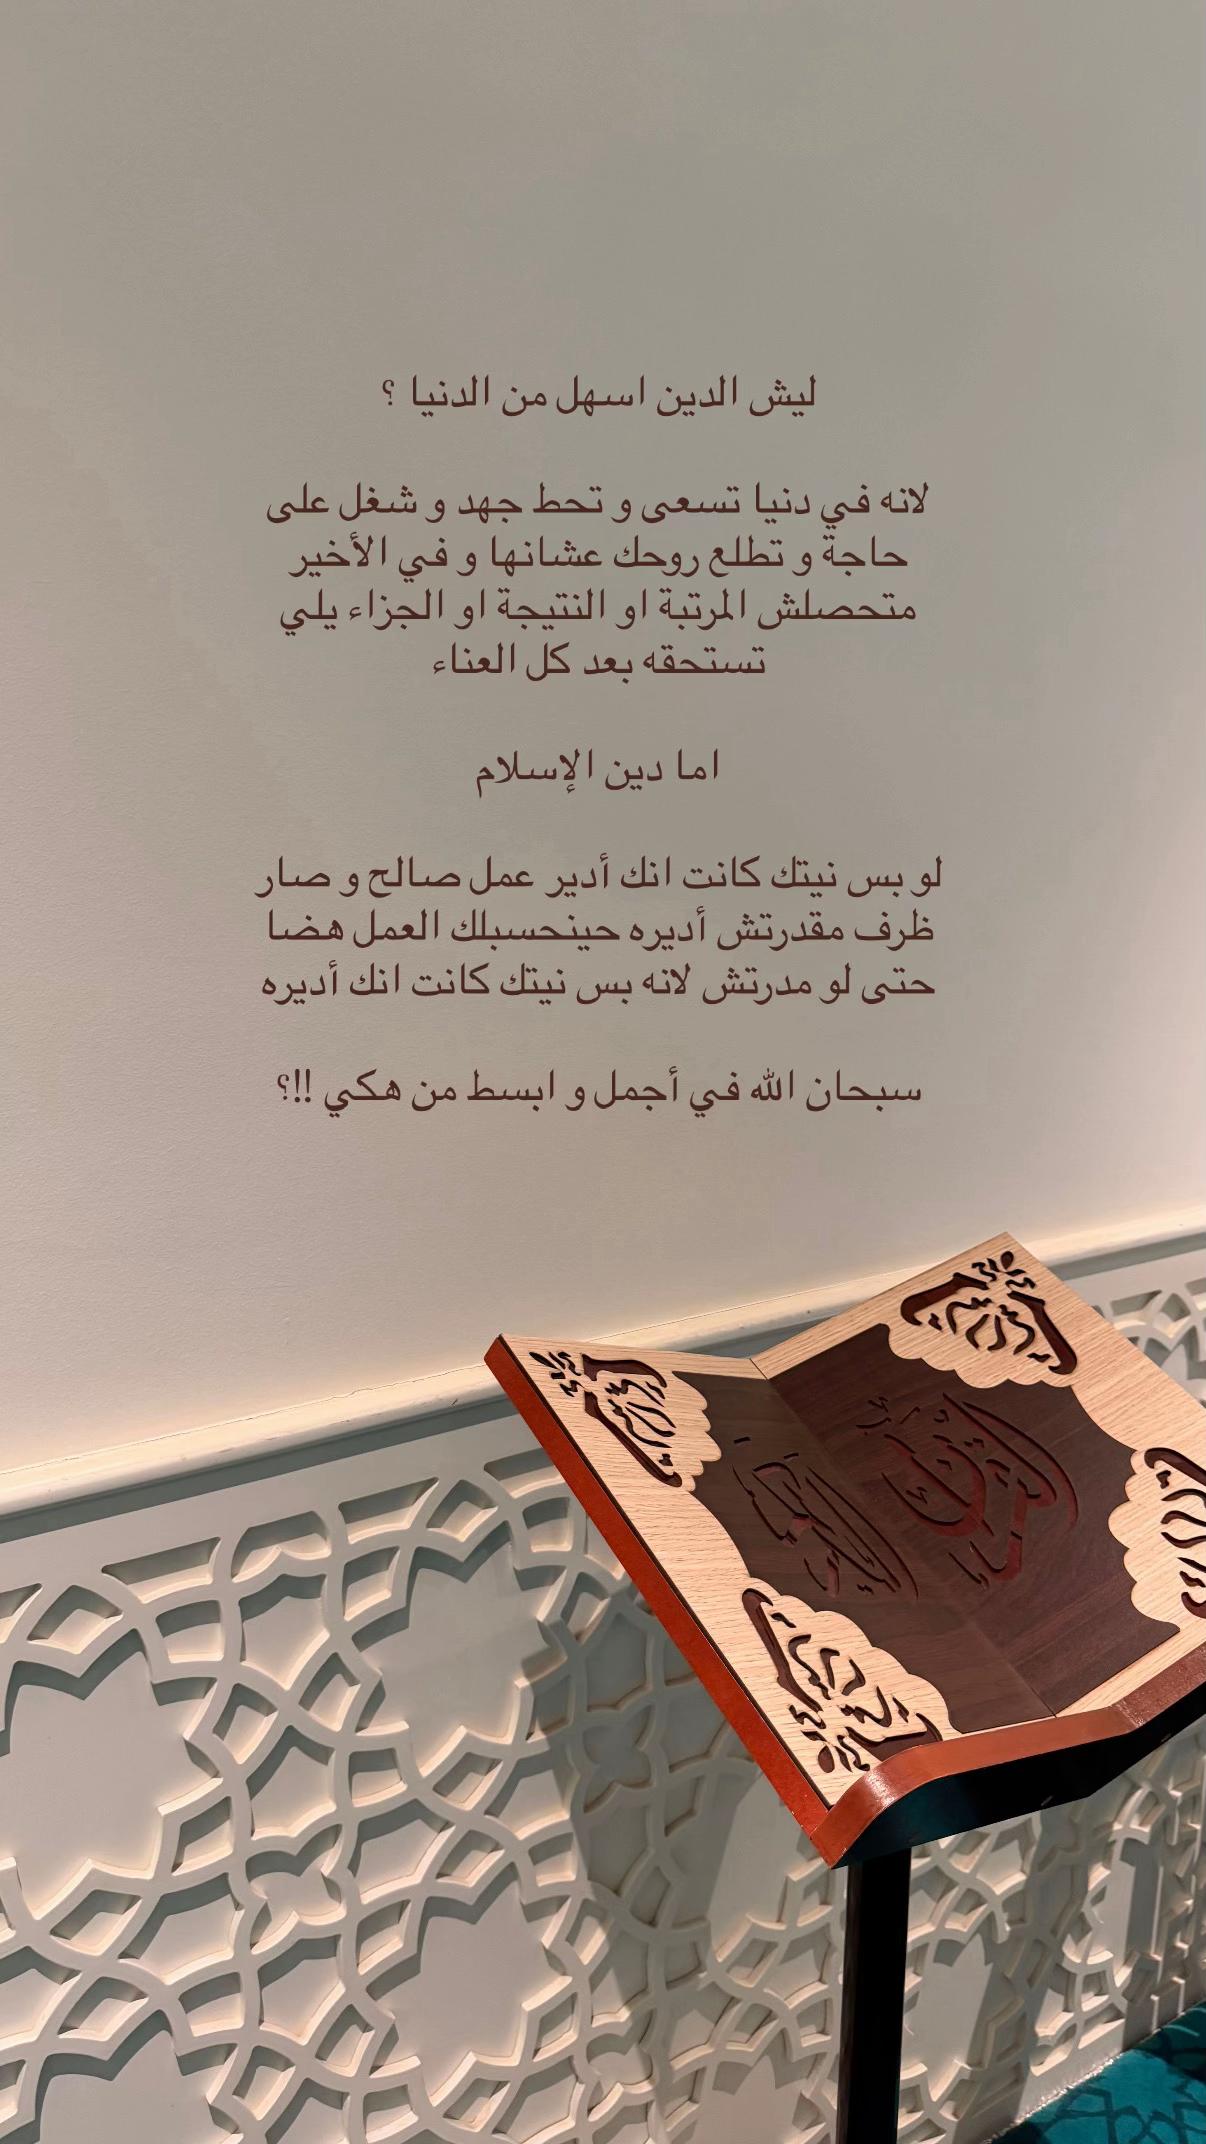 ليش الدين اسهل من الدنيا ؟
لانه في دنيا تسعى و تحط جهد و شغل على
حاجة و تطلع روحك عشانها و في الأخير
متحصلش المرتبة او النتيجة او الجزاء يلي
تستحقه بعد كل العناء
اما دين الإسلام
لو بس نيتك كانت انك أدير عمل صالح و صار
ظرف مقدرتش أديره حينحسبلك العمل هضا
حتى لو مدرتش لانه بس نيتك كانت انك أديره
سبحان الله في أجمل و ابسط من هكي !!؟